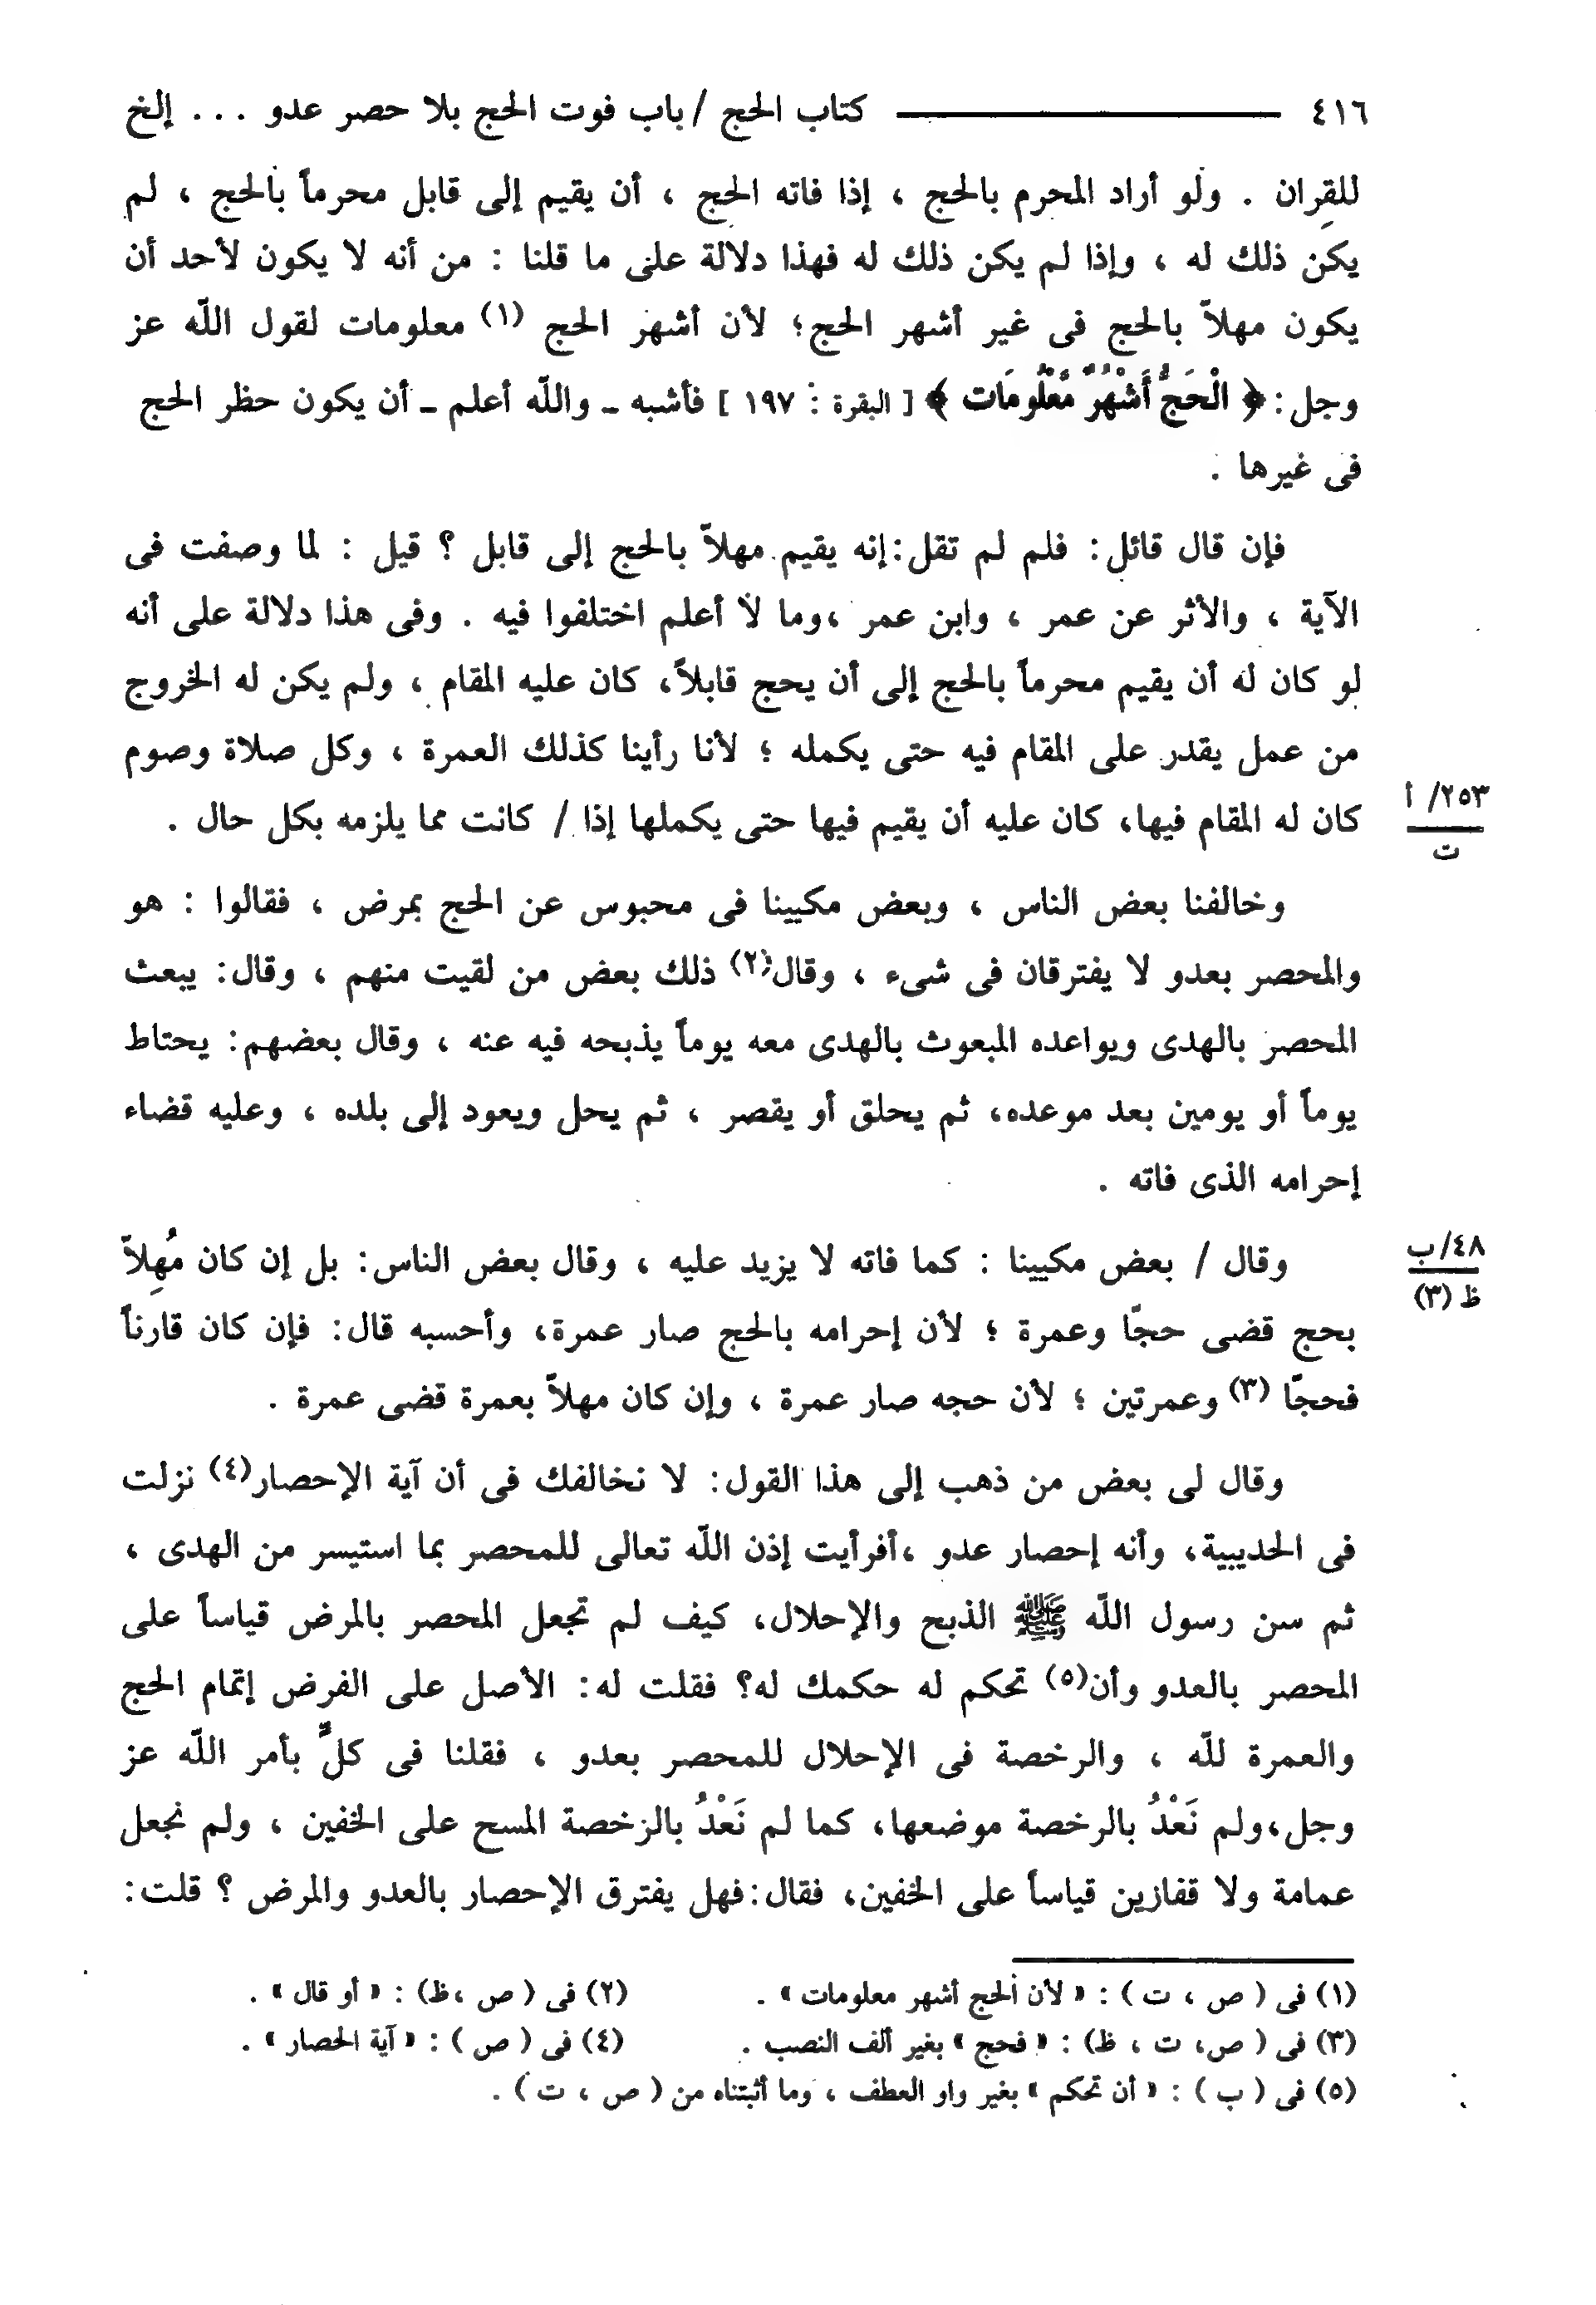 ٤١٦ ــــــــ كتاب الحج / باب فوت الحج بلا حصر عدو ... إلخ
للقِران . ولو أراد المحرم بالحج ، إذا فاته الحج ، أن يقيم إلى قابل محرماً بالحج ، لم
يكن ذلك له ، وإذا لم يكن ذلك له فهذا دلالة على ما قلنا : من أنه لا يكون لأحد أن
يكون مهلاً بالحج فى غير أشهر الحج؛ لأن أشهر الحج (١) معلومات لقول اللّه عز
وجل: ﴿ الْحَجُّ أَشْهُرٌ مَّعْلُومَات ﴾ [ البقرة : ١٩٧ ] فأشبه ـ واللّه أعلم ـ أن يكون حظر الحج
فى غيرها .
فإن قال قائل: فلم لم تقل:إنه يقيم مهلاً بالحج إلى قابل ؟ قيل : لما وصفت فى
الآية ، والأثر عن عمر ، وابن عمر ،وما لا أعلم اختلفوا فيه . وفى هذا دلالة على أنه
لو كان له أن يقيم محرماً بالحج إلى أن يحج قابلاً، كان عليه المقام ، ولم يكن له الخروج
من عمل يقدر على المقام فيه حتى يكمله ؛ لأنا رأينا كذلك العمرة ، وكل صلاة وصوم
كان له المقام فيها، كان عليه أن يقيم فيها حتى يكملها إذا / كانت مما يلزمه بكل حال .
٢٥٣/ أ
ت
وخالفنا بعض الناس ، وبعض مكيينا فى محبوس عن الحج بمرض ، فقالوا : هو
والمحصر بعدو لا يفترقان فى شىء ، وقال(٢) ذلك بعض من لقيت منهم ، وقال: يبعث
المحصر بالهدى ويواعده المبعوث بالهدى معه يوماً يذبحه فيه عنه ، وقال بعضهم: يحتاط
يوماً أو يومين بعد موعده، ثم يحلق أو يقصر ، ثم يحل ويعود إلى بلده ، وعليه قضاء
إحرامه الذى فاته .
وقال / بعض مكيينا : كما فاته لا يزيد عليه ، وقال بعض الناس: بل إن كان مُهِلاً
٤٨/ب
ظ (٣)
بحج قضى حجّا وعمرة ؛ لأن إحرامه بالحج صار عمرة، وأحسبه قال: فإن كان قارناً
فحجّا (٣) وعمرتين ؛ لأن حجه صار عمرة ، وإن كان مهلاً بعمرة قضى عمرة .
وقال لى بعض من ذهب إلى هذا القول: لا نخالفك فى أن آية الإحصار(٤) نزلت
فى الحديبية، وأنه إحصار عدو ،أفرأيت إذن اللّه تعالى للمحصر بما استيسر من الهدى ،
ثم سن رسول اللّه ﷺ الذبح والإحلال، كيف لم تجعل المحصر بالمرض قياساً على
المحصر بالعدو وأن(٥) تحكم له حكمك له؟ فقلت له: الأصل على الفرض إتمام الحج
والعمرة للّه ، والرخصة فى الإحلال للمحصر بعدو ، فقلنا فى كلٍّ بأمر اللّه عز
وجل،ولم نَعْدُ بالرخصة موضعها، كما لم نَعْدُ بالرخصة المسح على الخفين ، ولم نجعل
عمامة ولا قفازين قياساً على الخفين، فقال:فهل يفترق الإحصار بالعدو والمرض ؟ قلت:
(١) فى ( ص ، ت ) : « لأن الحج أشهر معلومات » .
(٢) فى ( ص ،ظ) : « أو قال » .
(٣) فى ( ص، ت ، ظ) : « فحج » بغير ألف النصب .
(٤) فى ( ص ) : « آية الحصار » .
(٥) فى ( ب ) : « أن تحكم » بغير واو العطف ، وما أثبتناه من ( ص ، ت ) .